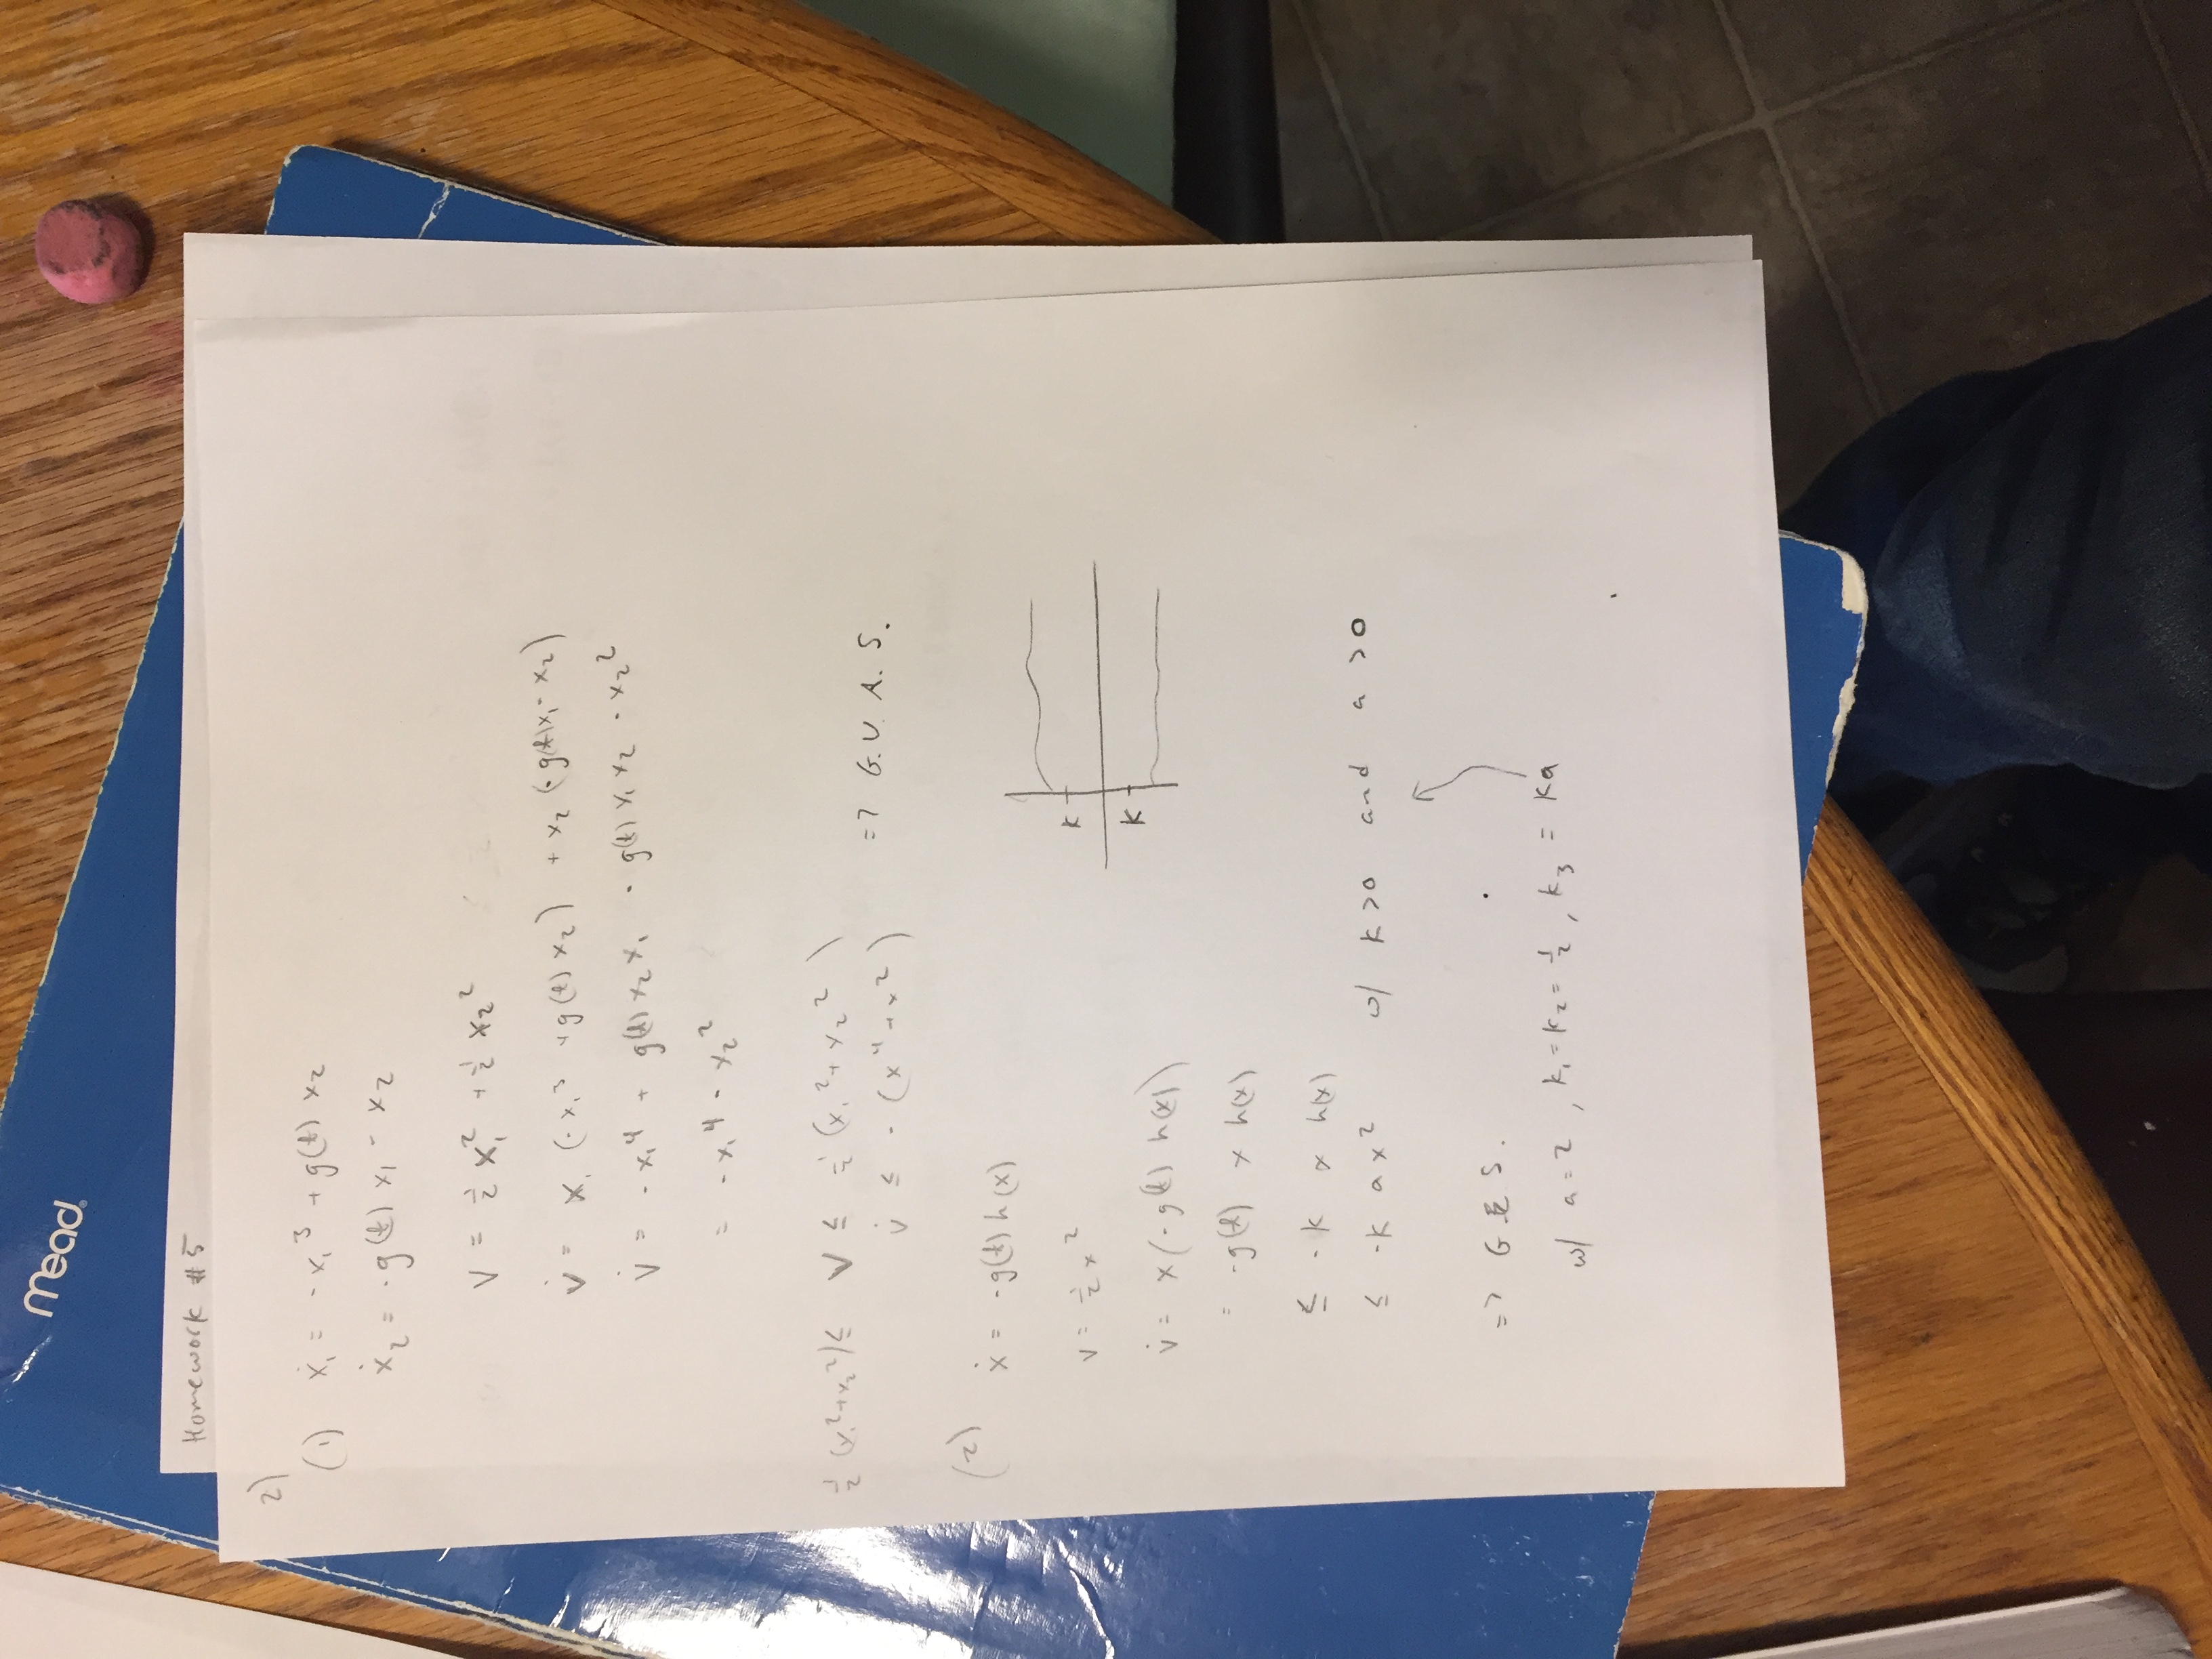 mead
Homework #5
2)
(1) ẋ₁ = -x₁³ + g(t) x₂
ẋ₂ = -g(t) x₁ - x₂
V = ½ x₁² + ½ x₂²
V̇ = x₁ (-x₁³ + g(t) x₂) + x₂ (-g(t)x₁ - x₂)
V̇ = -x₁⁴ + g(t) x₂ x₁ - g(t) x₁ x₂ - x₂²
= -x₁⁴ - x₂²
½ (x₁² + x₂²) ≤ V ≤ ½ (x₁² + x₂²)
V̇ ≤ - (x⁴ + x²) => G.U.A.S.
(2)
ẋ = -g(t) h(x)
V = ½ x²
V̇ = x(-g(t) h(x))
= -g(t) x h(x)
≤ -k x h(x)
≤ -k a x² w/ k > 0 and a > 0
=> G.E.S.
w/ a = 2, k₁ = k₂ = ½, k₃ = ka
k
k